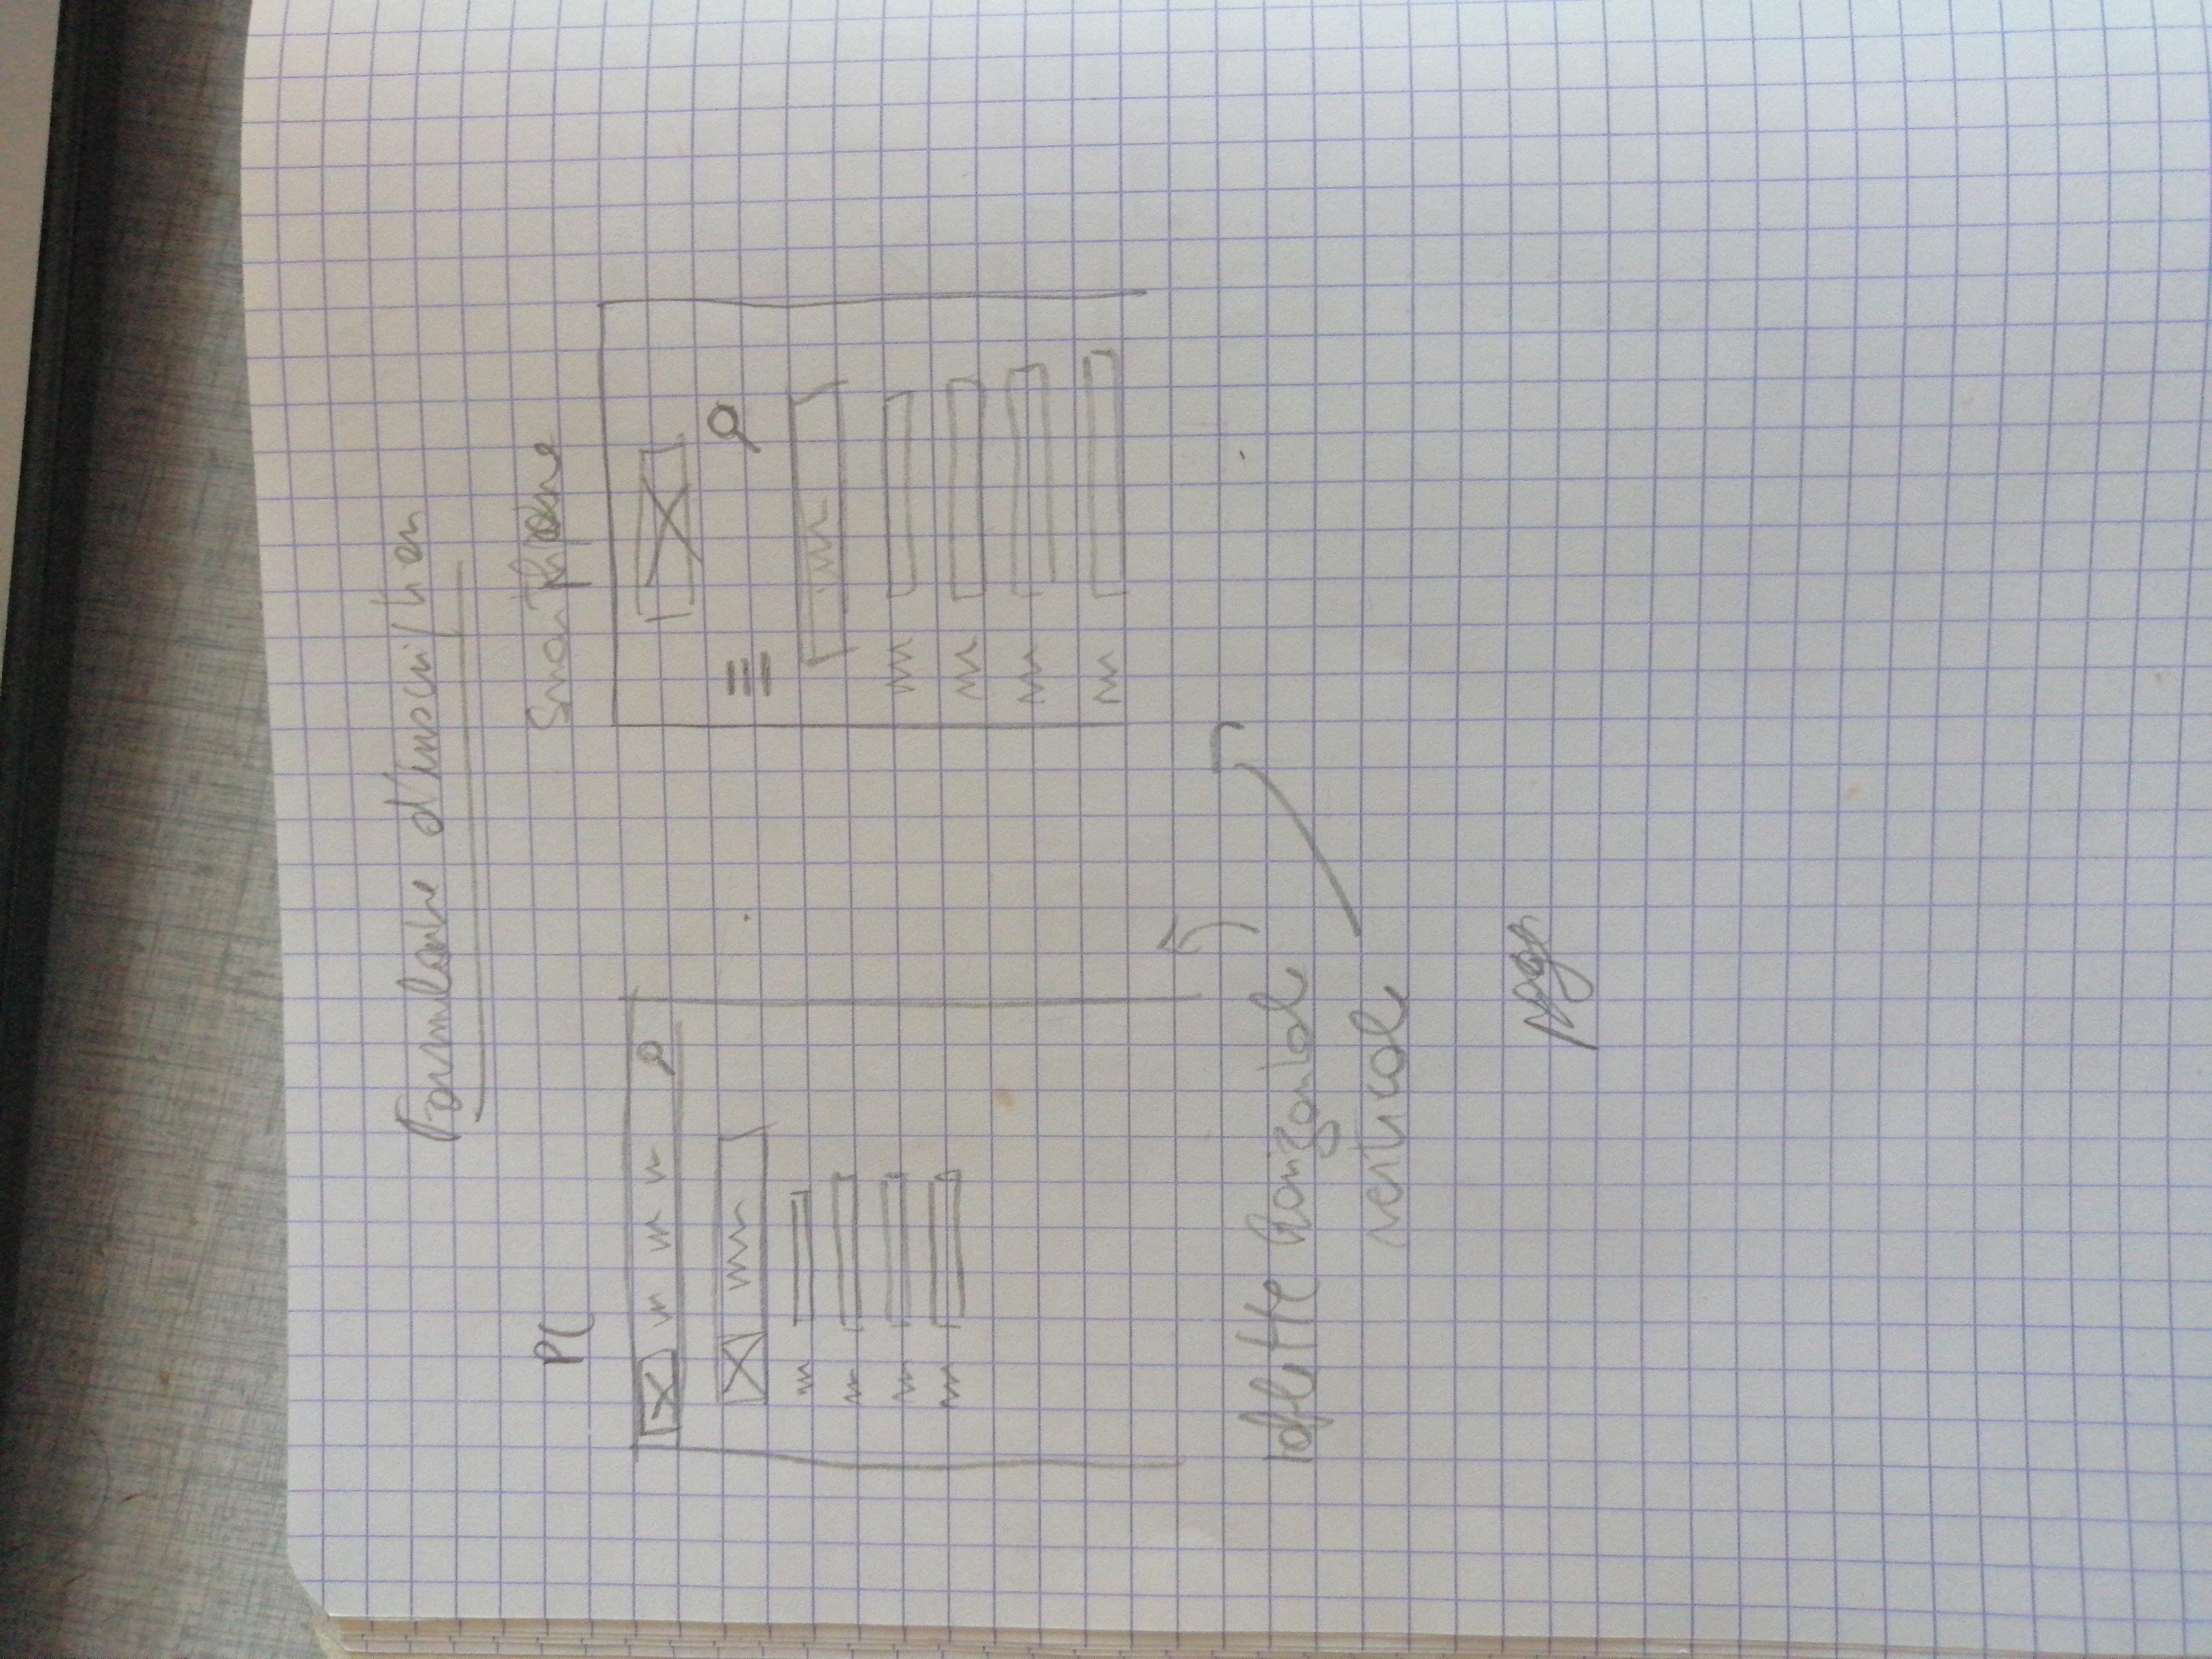 Formulaire d'inscription
PC
Smartphone
tablette horizontale
verticale